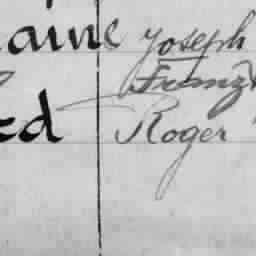 aine Joseph
Franz
ed Roger